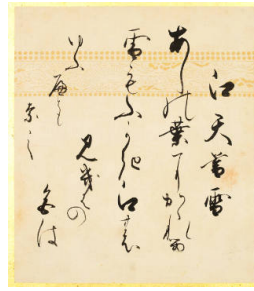 江天暮雪
あしの葉にかゝれる
雪もふかき江の
見幾はの色は
ゆふへとも
なし